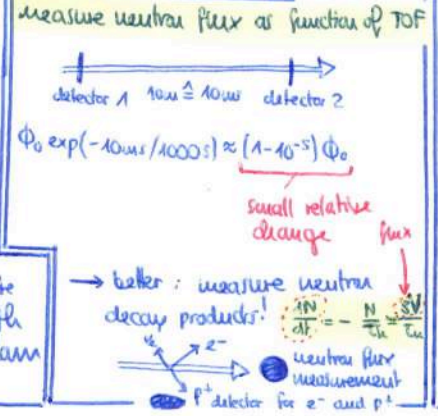 measure neutron flux as function of TOF
detector 1 10m ≙ 10ms detector 2
Φ₀ exp(-10ms/1000s) ≈ (1-10⁻⁵) Φ₀
small relative
change
flux
→ better: measure neutron
decay products!
dN/dt = - N/τₙ = SV/τₙ
e⁻
neutron flux
measurement
p⁺
detector for e⁻ and p⁺